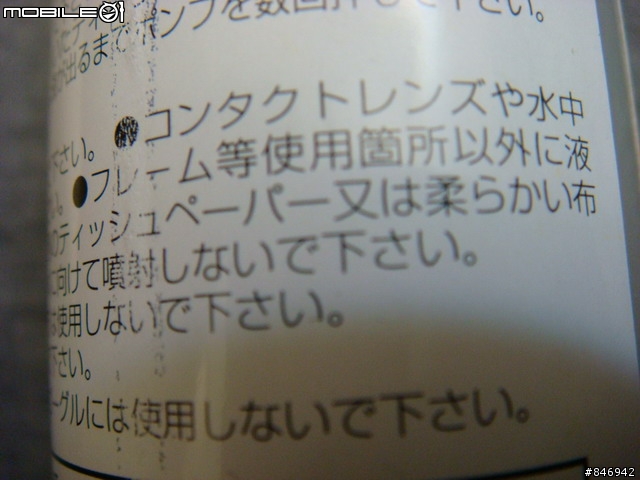 MOBILE01
ポンプを数回押して下さい。
出るまで
下さい。●コンタクトレンズや水中
い。●フレーム等使用箇所以外に液
ティッシュペーパー又は柔らかい布
向けて噴射しないで下さい。
使用しないで下さい。
下さい。
ーグルには使用しないで下さい。
#846942